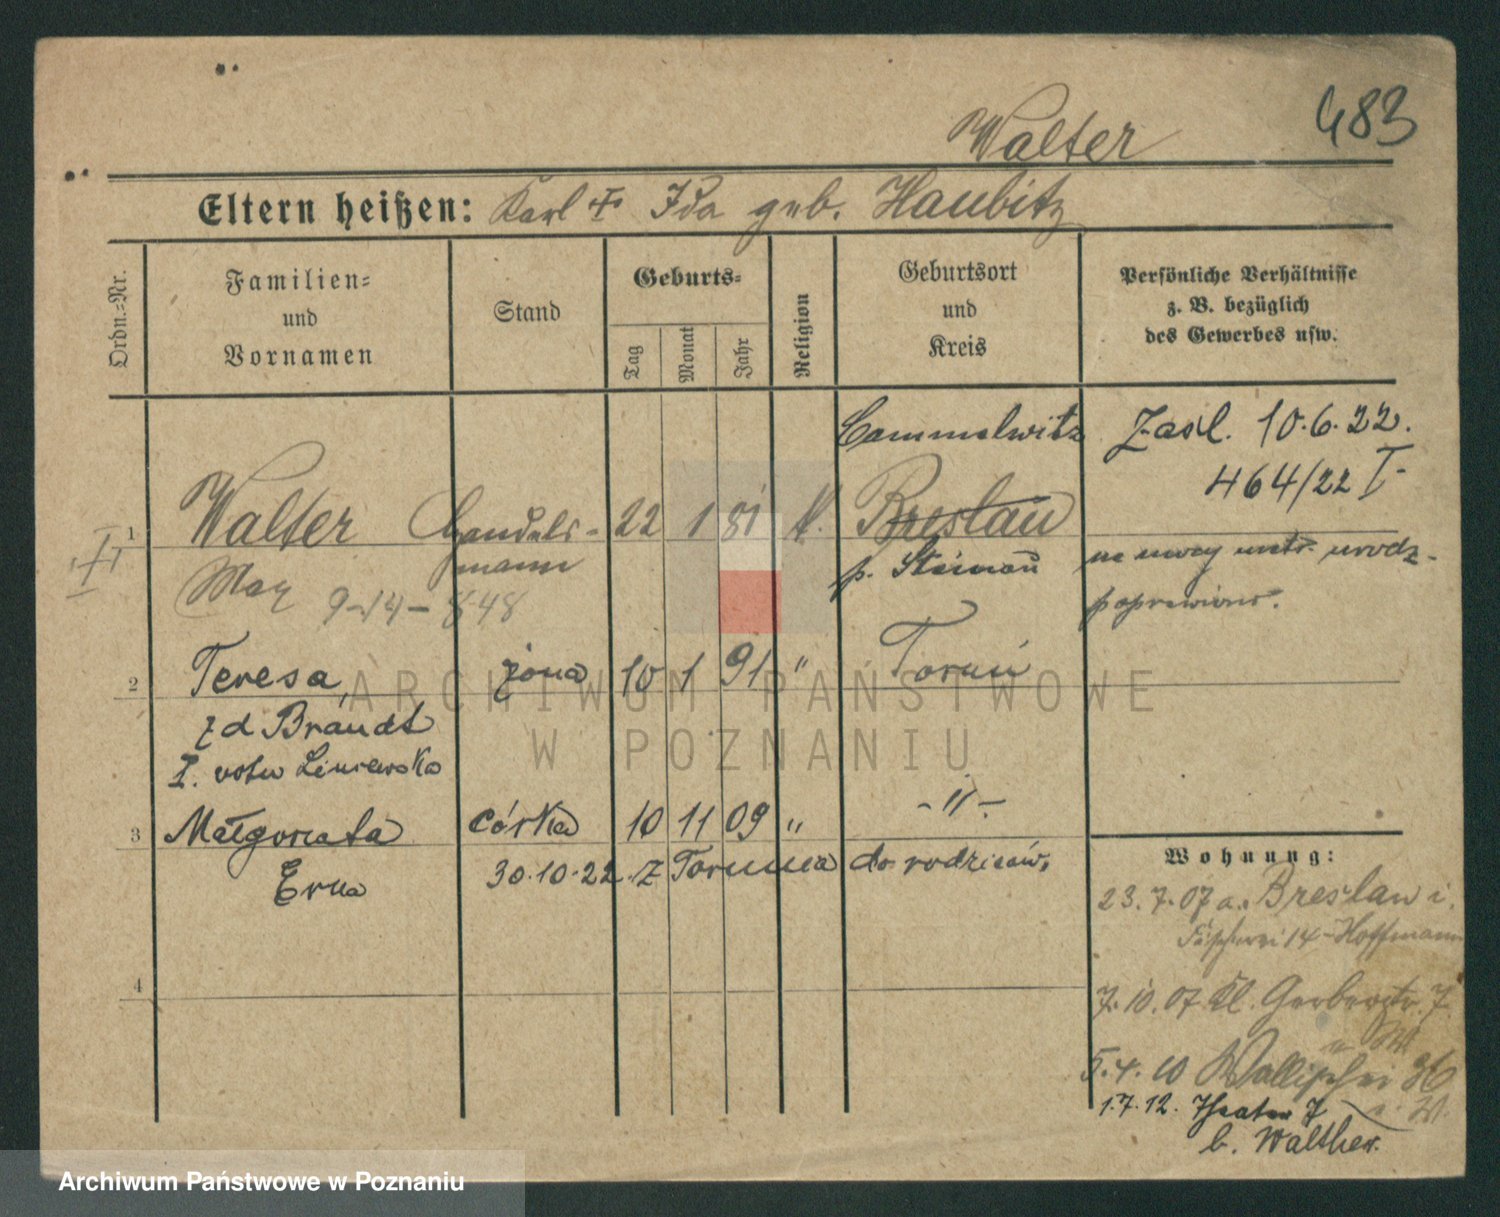 483
Walter
Eltern heißen: Karl + Ida geb. Haubitz
Ordn.-Nr.
Familien-
und
Vornamen
Stand
Geburts-
Tag
Monat
Jahr
Religion
Geburtsort
und
Kreis
Persönliche Verhältnisse
z. B. bezüglich
des Gewerbes usw.
Cammelwitz
Zasl. 10.6.22.
464/22 I-
1 Walter Handels- 22 1 81 k. Breslau
mann
p. Steinau
na mocy metr. urodz-
poprawiono.
Max
2 Teresa, żona 10 1 91 " Toruń
zd Brandt
I. votu Liniewska
3 Małgorzata córka 10 11 09 " -"-
Erna 30.10.22. z Torunia do rodziców.
4
Wohnung:
23. 7. 07 a. Breslau i.
14 - Hoffmann
7. 10. 07 Kl. Gerberstr. 7
5. 4. 10 Wallischei
1. 7. 12. Theater 7
b. Walther.
ARCHIWUM PAŃSTWOWE
W POZNANIU
Archiwum Państwowe w Poznaniu